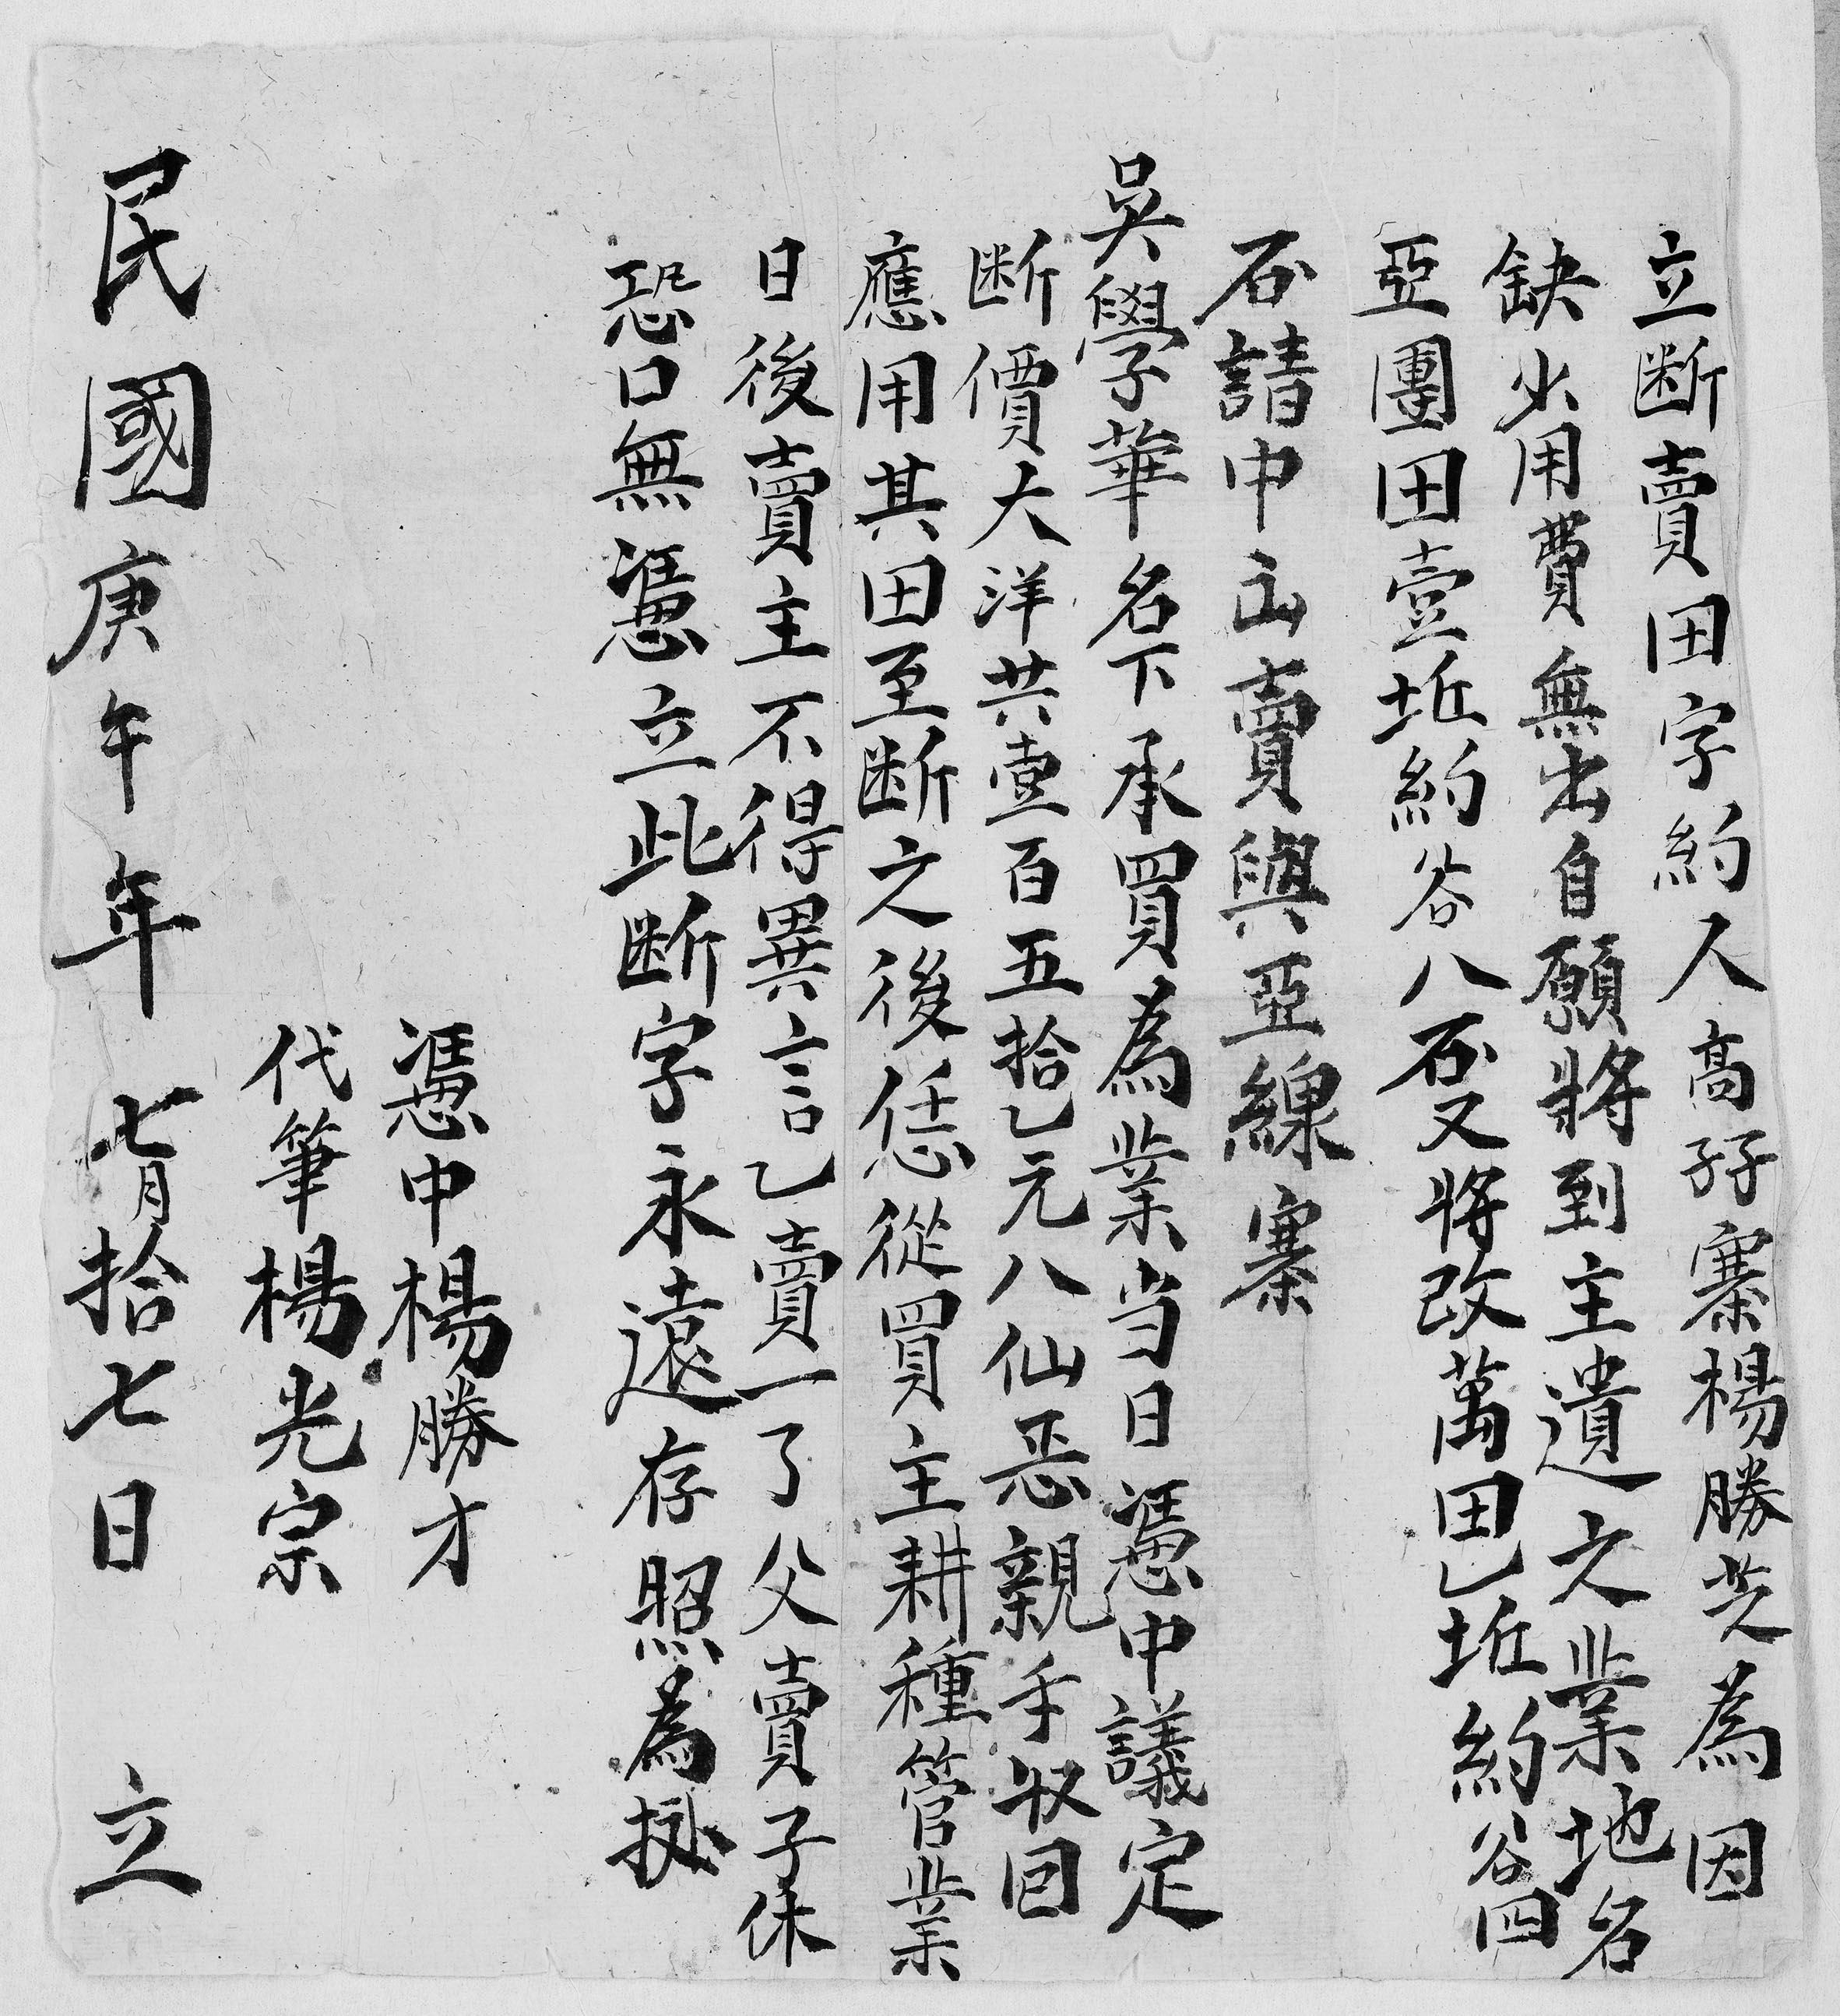 立断賣田字約人高孖寨楊勝芝為因
缺少用費無出自願將到主遺之業地名
亞團田壹坵約谷八石又將改萬田乙坵約谷四
石請中出賣與亞線寨
吳學華名下承買為業当日憑中議定
断價大洋共壹百五拾乙元八仙恶親手収回
應用其田至断之後恁從買主耕種管業
日後賣主不得異言乙賣一了父賣子休
恐口無憑立此断字永遠存照為拠
憑中楊勝才
代筆楊光宗
民國庚午年七月拾七日 立